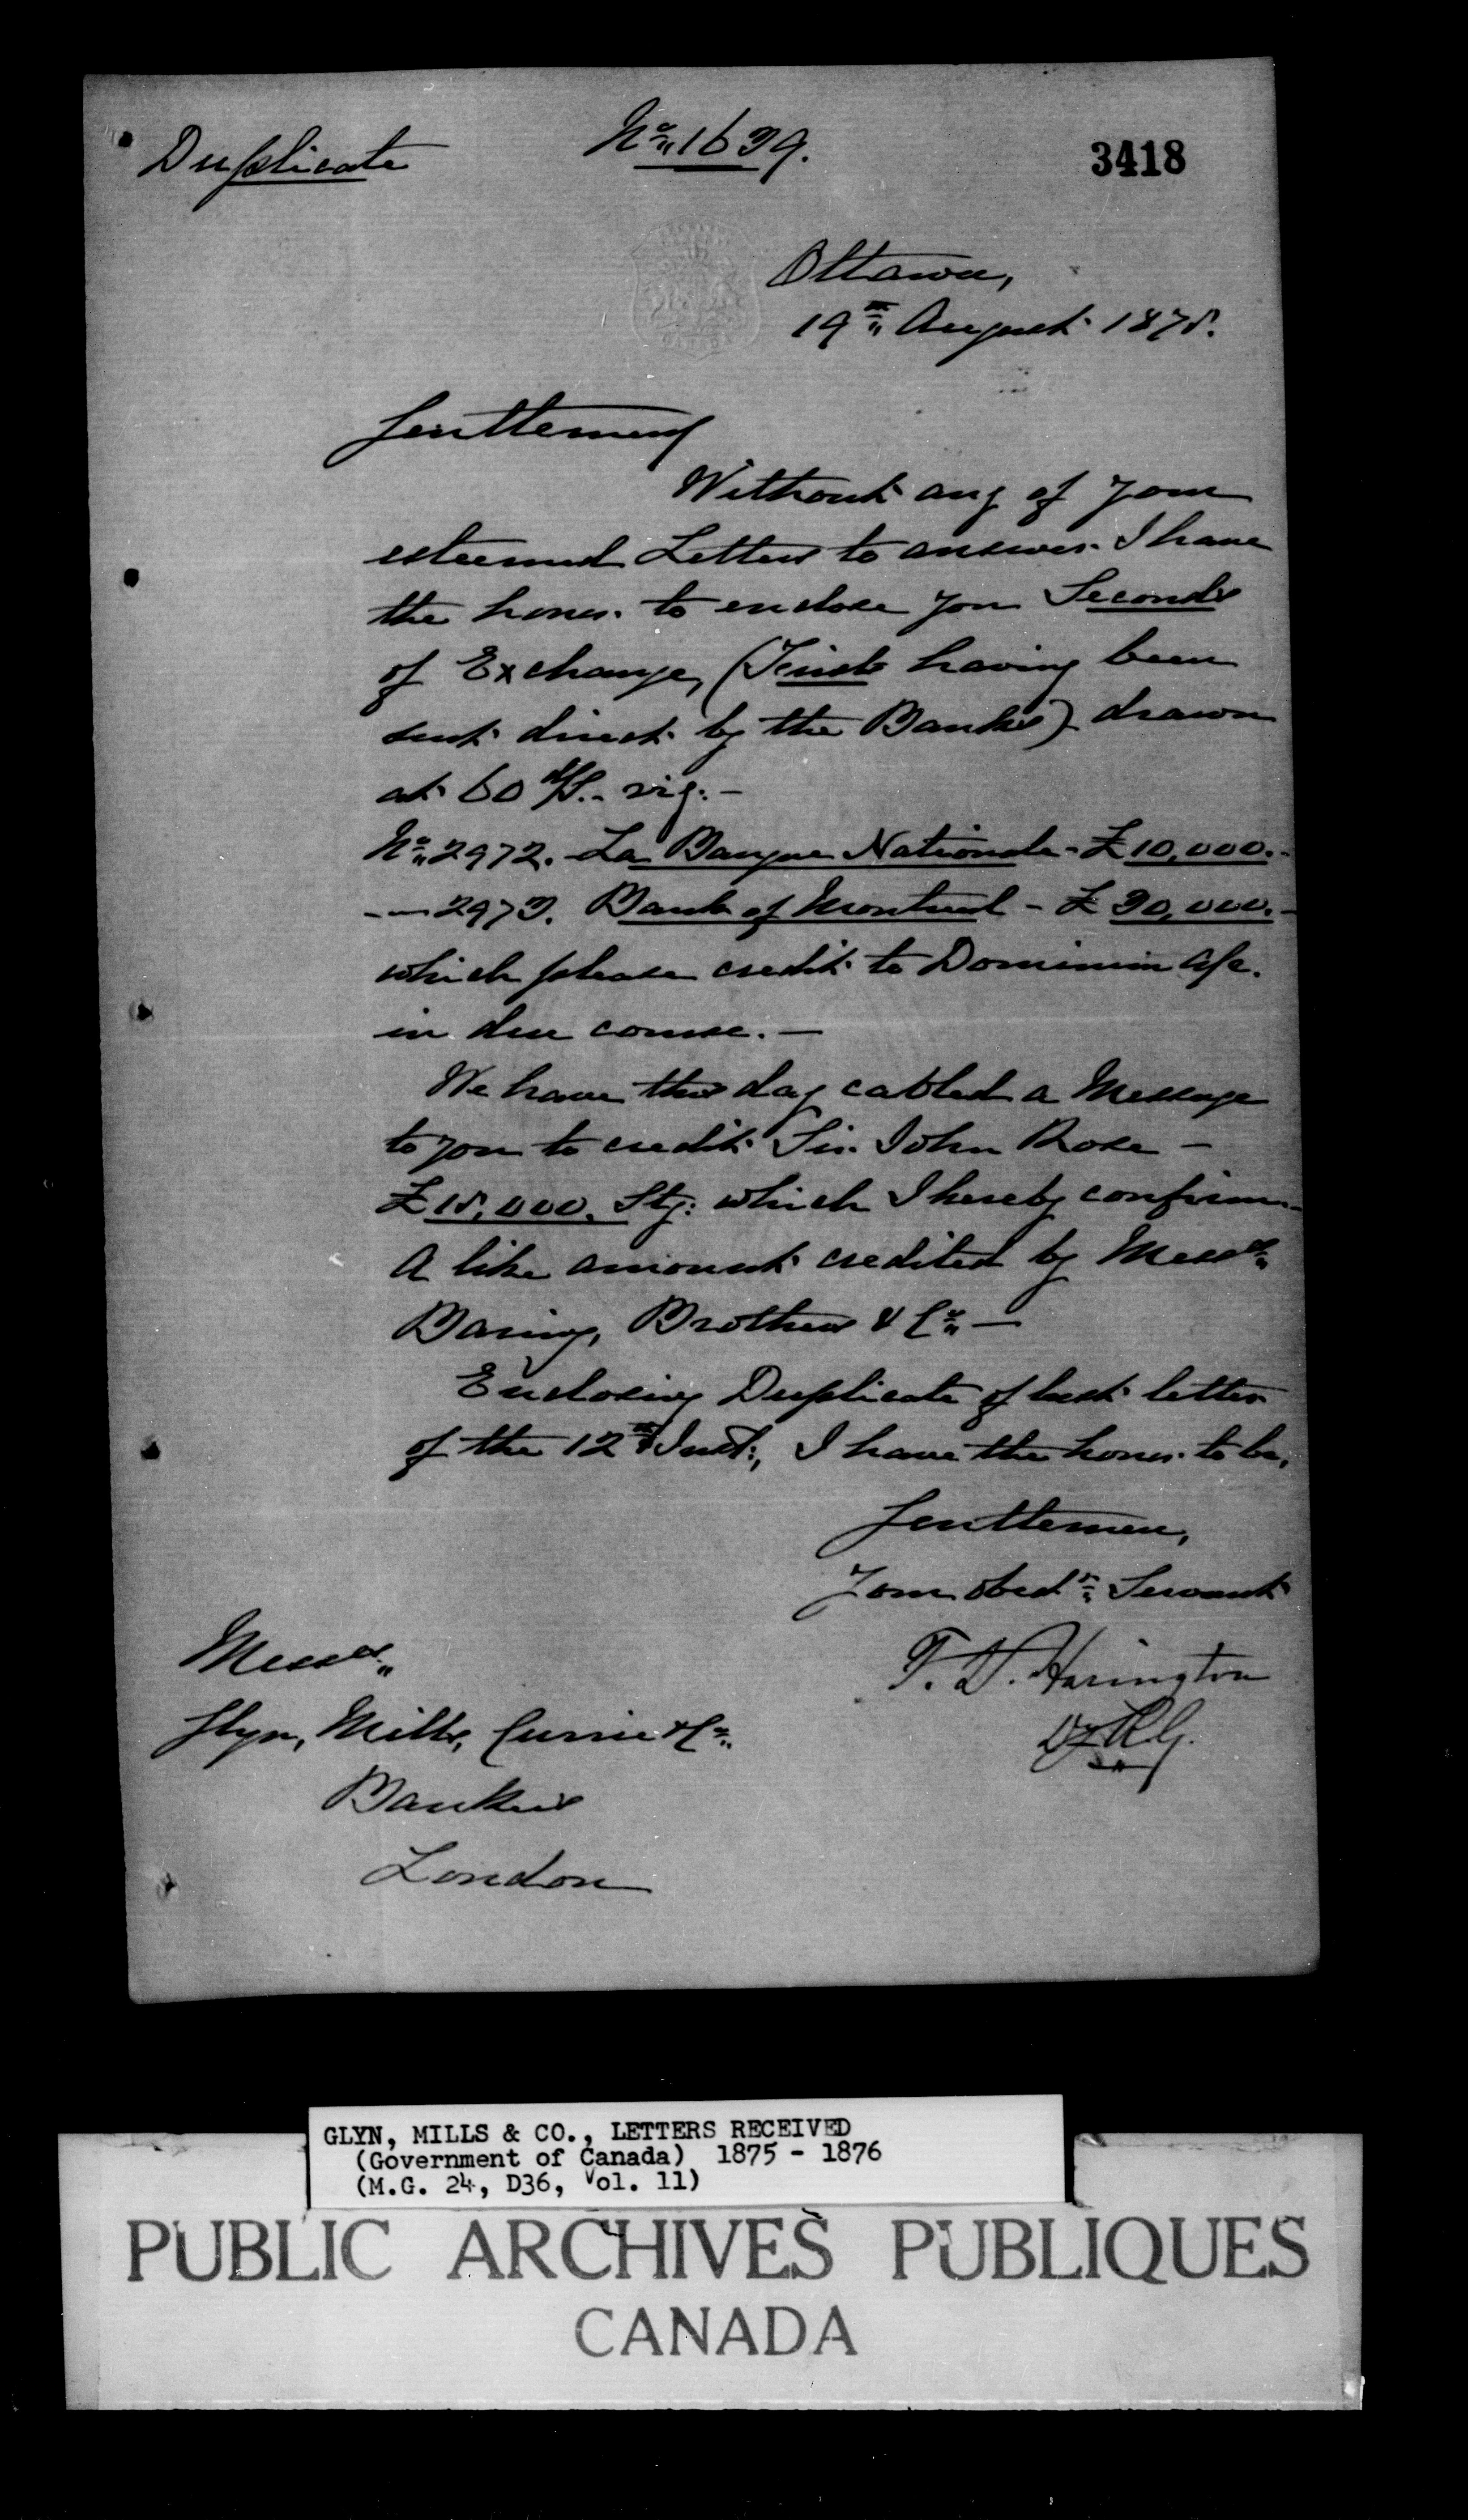 Duplicate
No. 1639.
3418
Ottawa,
19th August 1875.
Gentlemen
Without any of your
esteemed Letters to answer I have
the honor to enclose you Seconds
of Exchange, (Firsts having been
sent direct by the Banks) drawn
at 60 d/s. viz: —
No. 2972. La Banque Nationale - £10,000. -
-"- 2973. Bank of Montreal - £30,000. -
which please credit to Dominion a/c.
in due course. —
We have this day cabled a Message
to you to credit Sir John Rose —
£15,000. Stg: which I hereby confirm. -
A like amount credited by Messrs
Baring, Brothers & Co —
Enclosing Duplicate of last letter
of the 12th Inst:, I have the honor to be,
Gentlemen,
Your obedt Servant
T. D. Harington
Dy R.G.
Messrs
Glyn, Mills, Currie & Co.
Bankers
London
GLYN, MILLS & CO., LETTERS RECEIVED
(Government of Canada) 1875 - 1876
(M.G. 24, D36, Vol. 11)
PUBLIC ARCHIVES PUBLIQUES
CANADA